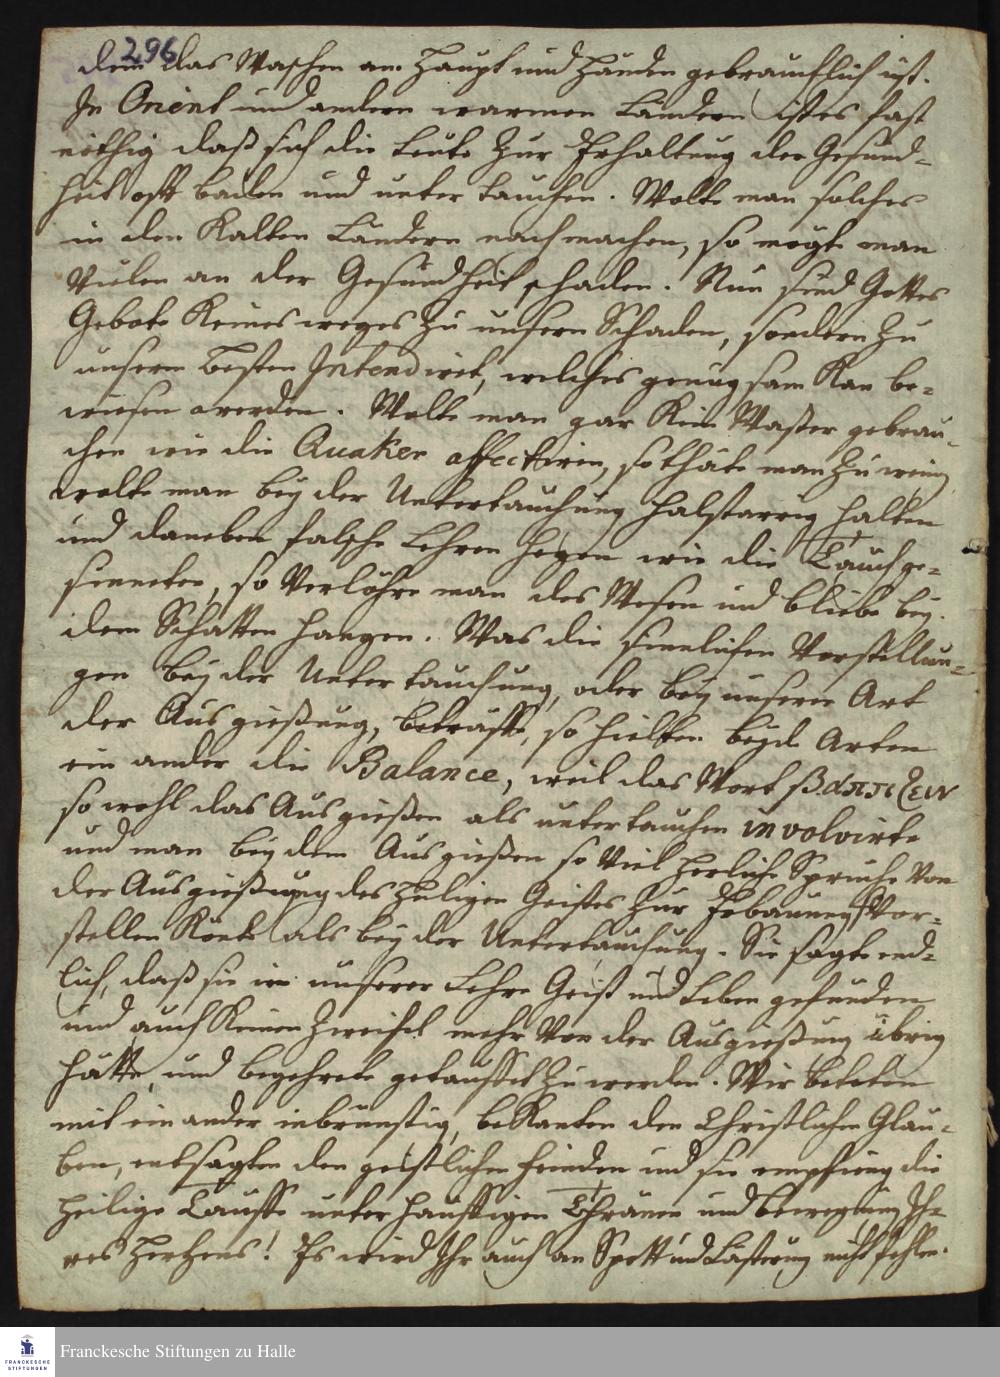 296
dem das Waschen am Haupt und Händen gebräuchlich ist.
In Orient und andern warmen Ländern ist es fast
nöthig daß sich die Leute zur Erhaltung der Gesund-
heit oft baden und unter tauchen. Wolte man solches
in den Kalten Ländern nachmachen, so mögte man
Vielen an der Gesundheit schaden. Nun sind Gottes
Gebote Keines weges zu unsern Schaden, sondern zu
unserm Besten Intendiret, welches genugsam Kan be-
wiesen werden. Wolte man gar Kein Waßer gebrau-
chen wie die Quaker affectiren, so thäte man zu wenig
wolte man bey der Untertauchung halstarrig halten
und daneben falsche Lehren hegen wie die Tauchge-
sinneten, so Verlöhre man das Wesen und bliebe bey
dem Schatten hangen. Was die sinnlichen Vorstellun-
gen bey der Unter tauchung, oder bey unserer Art
der Ausgießung, beträffe, so hielten beyde Arten
ein ander die Balance, weil das Wort βαπτιζειν
so wohl das Ausgießen als untertauchen involvirte
und man bey dem Ausgießen so viel herliche Sprüche Von
der Ausgießung des Heiligen Geistes zur Erbauung Vor-
stellen Könte als bey der Untertauchung. Sie sagte end-
lich, daß sie in unserer Lehre Geist und Leben gefunden
und auch Keinen Zweifel mehr Von der Ausgießung übrig
hätte, und begehrete getauffet zu werden. Wir beteten
mit ein ander inbrünstig, beKanten den Christlichen Glau-
ben, entsagten den geistlichen Feinden und sie empfieng die
heilige Tauffe unter häuffigen Thränen und Bewegung Ih-
res Hertzens! Es wird Ihr auch an Spott und Lästerung nicht fehlen.
FRANCKESCHE
STIFTUNGEN
Franckesche Stiftungen zu Halle